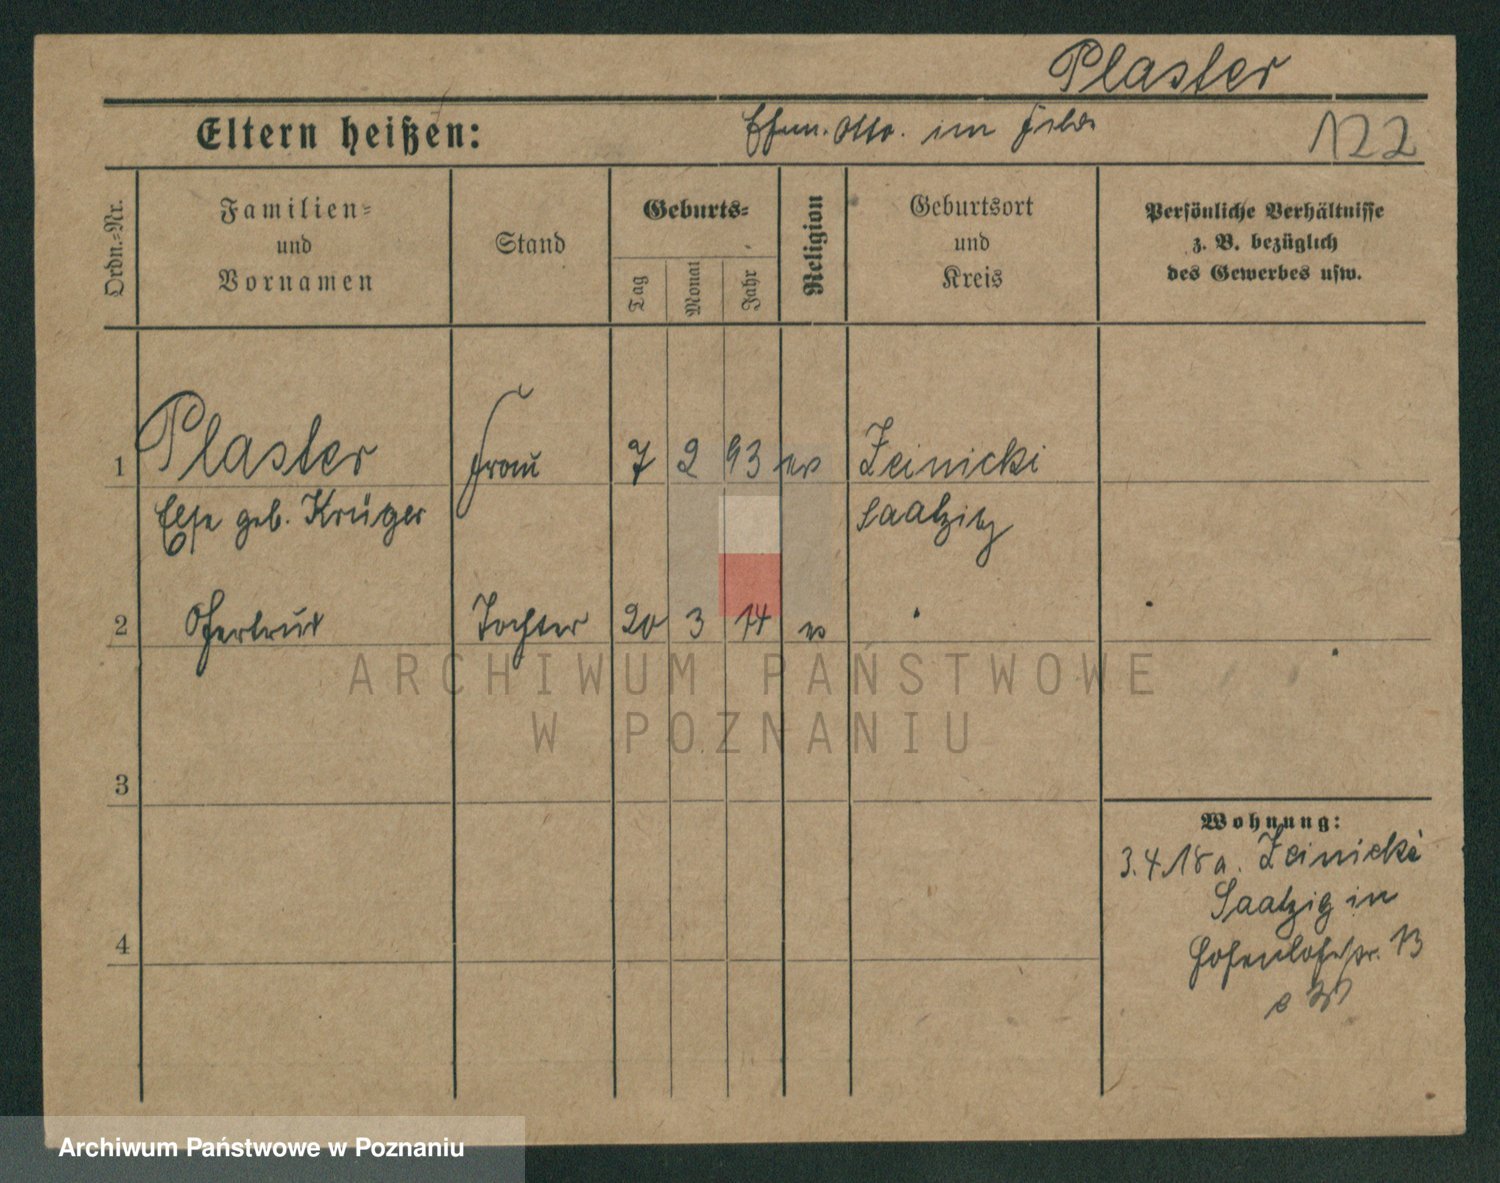 Plaster
Eltern heißen:
Ehem. Otto. im Felde
122
Ordn.-Nr.
Familien-
und
Vornamen
Stand
Geburts-
Tag
Monat
Jahr
Religion
Geburtsort
und
Kreis
Persönliche Verhältnisse
z. B. bezüglich
des Gewerbes usw.
1 Plaster Frau 7 2 93 ev Zeinicki
Else geb. Krüger Saatzig
2 Gertrud Tochter 20 3 14 ev
ARCHIWUM PAŃSTWOWE
W POZNANIU
3
4
Wohnung:
3.4.18 a. Zeinicki
Saatzig in
Hohenlohestr. 13
Archiwum Państwowe w Poznaniu